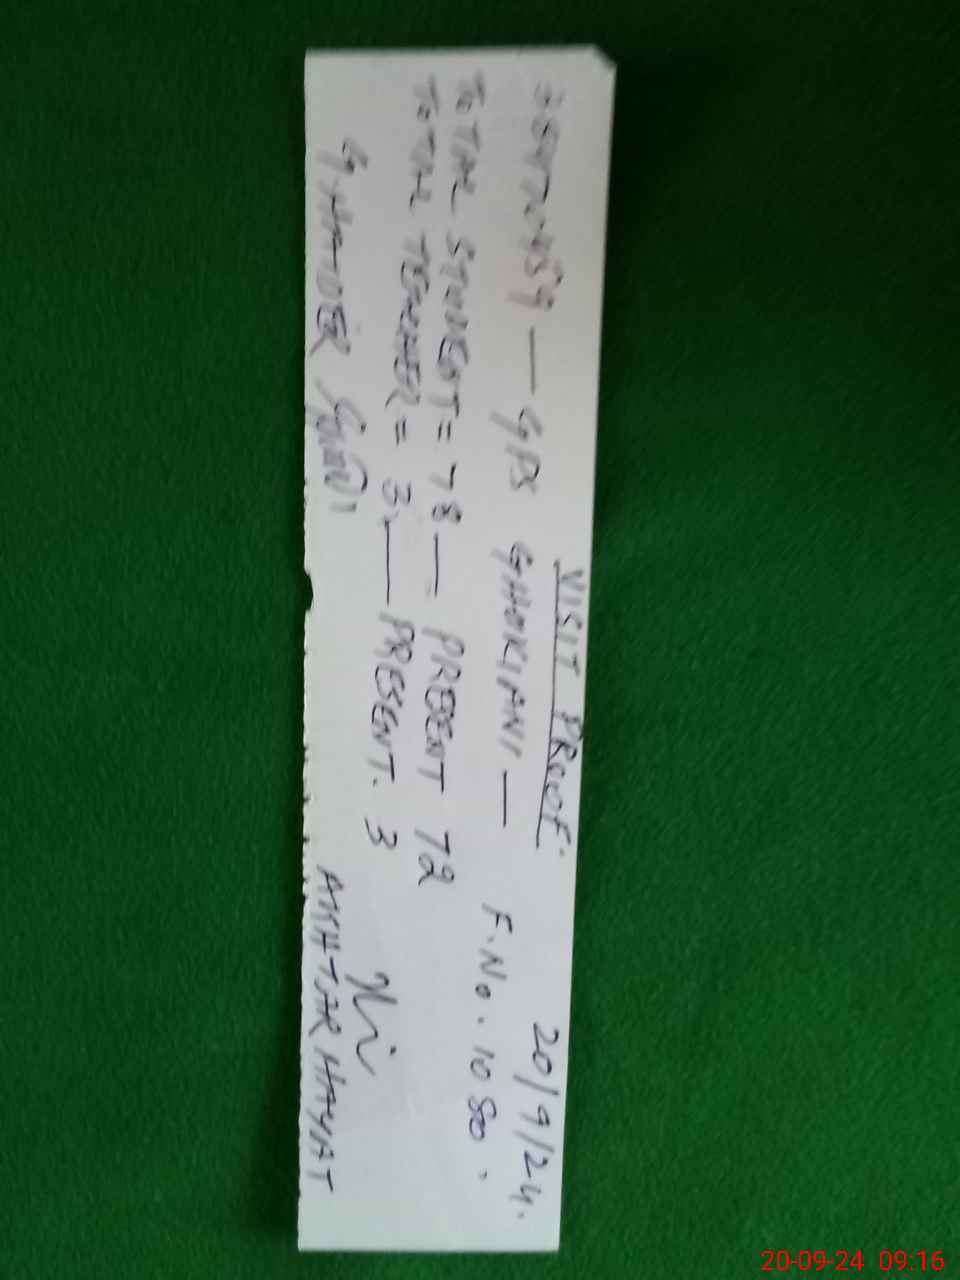 VISIT PROOF. 20/9/24.
GPS GHOKIANI — F.No. 1080.
TOTAL STUDENT = 78 — PRESENT 72
TOTAL TEACHER = 3 — PRESENT. 3
AKHTAR HAYAT
20-09-24 09:16